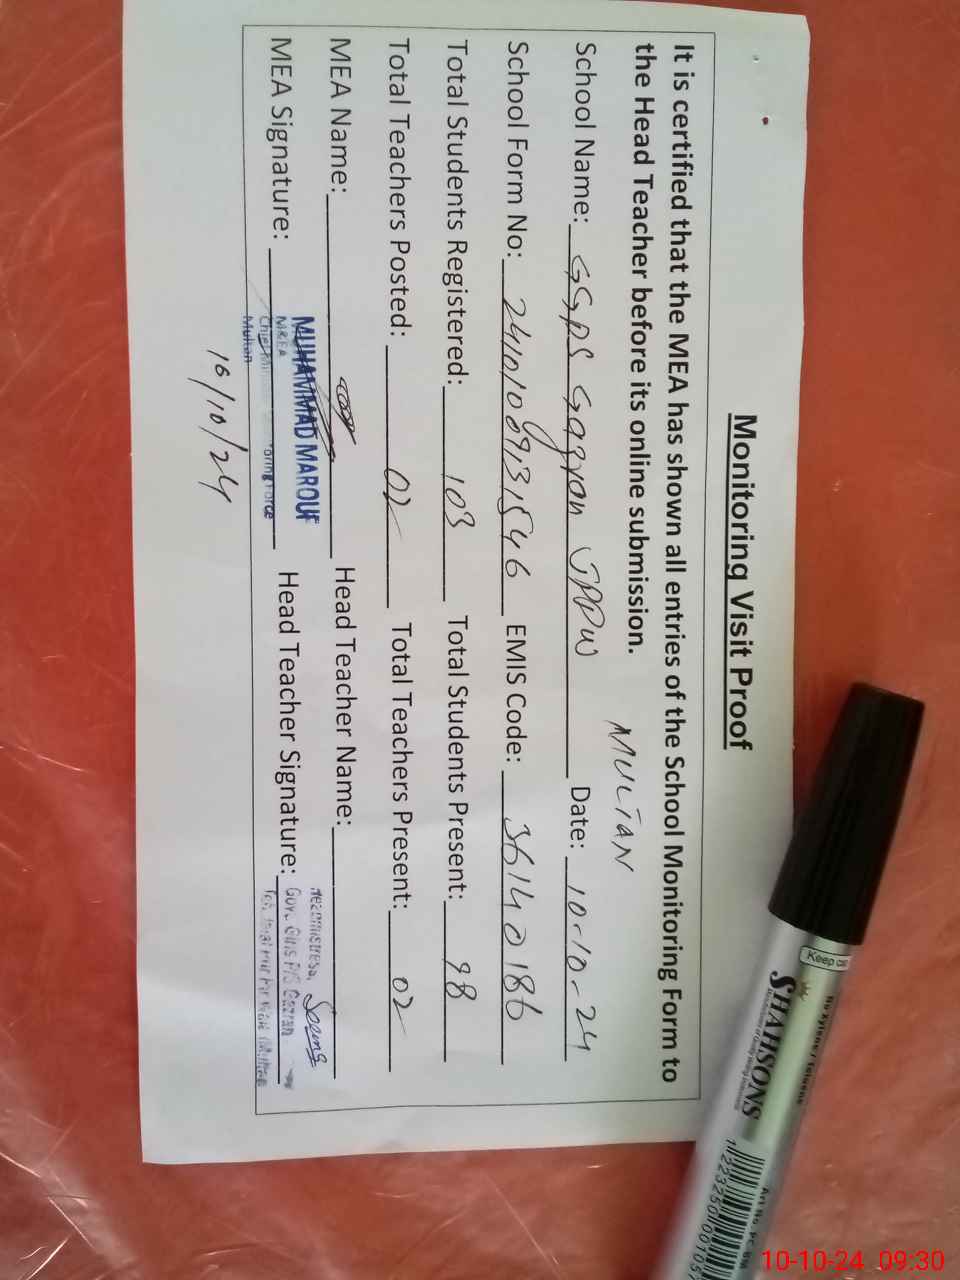 Monitoring Visit Proof
It is certified that the MEA has shown all entries of the School Monitoring Form to
the Head Teacher before its online submission.
MULTAN
School Name: GGPS Gagran JPPW Date: 10-10-24
School Form No: 24101009131546 EMIS Code: 36140186
Total Students Registered: 103 Total Students Present: 98
Total Teachers Posted: 02 Total Teachers Present: 02
MEA Name: Head Teacher Name:
MEA Signature: Head Teacher Signature:
MUHAMMAD MAROUF
M&EA
Chief Minister Monitoring Force
Multan
Govt. Girls P/S
10/10/24
Keep
SHAHSONS
No Xylene / Toluene
Art No. PC
10-10-24 09:30